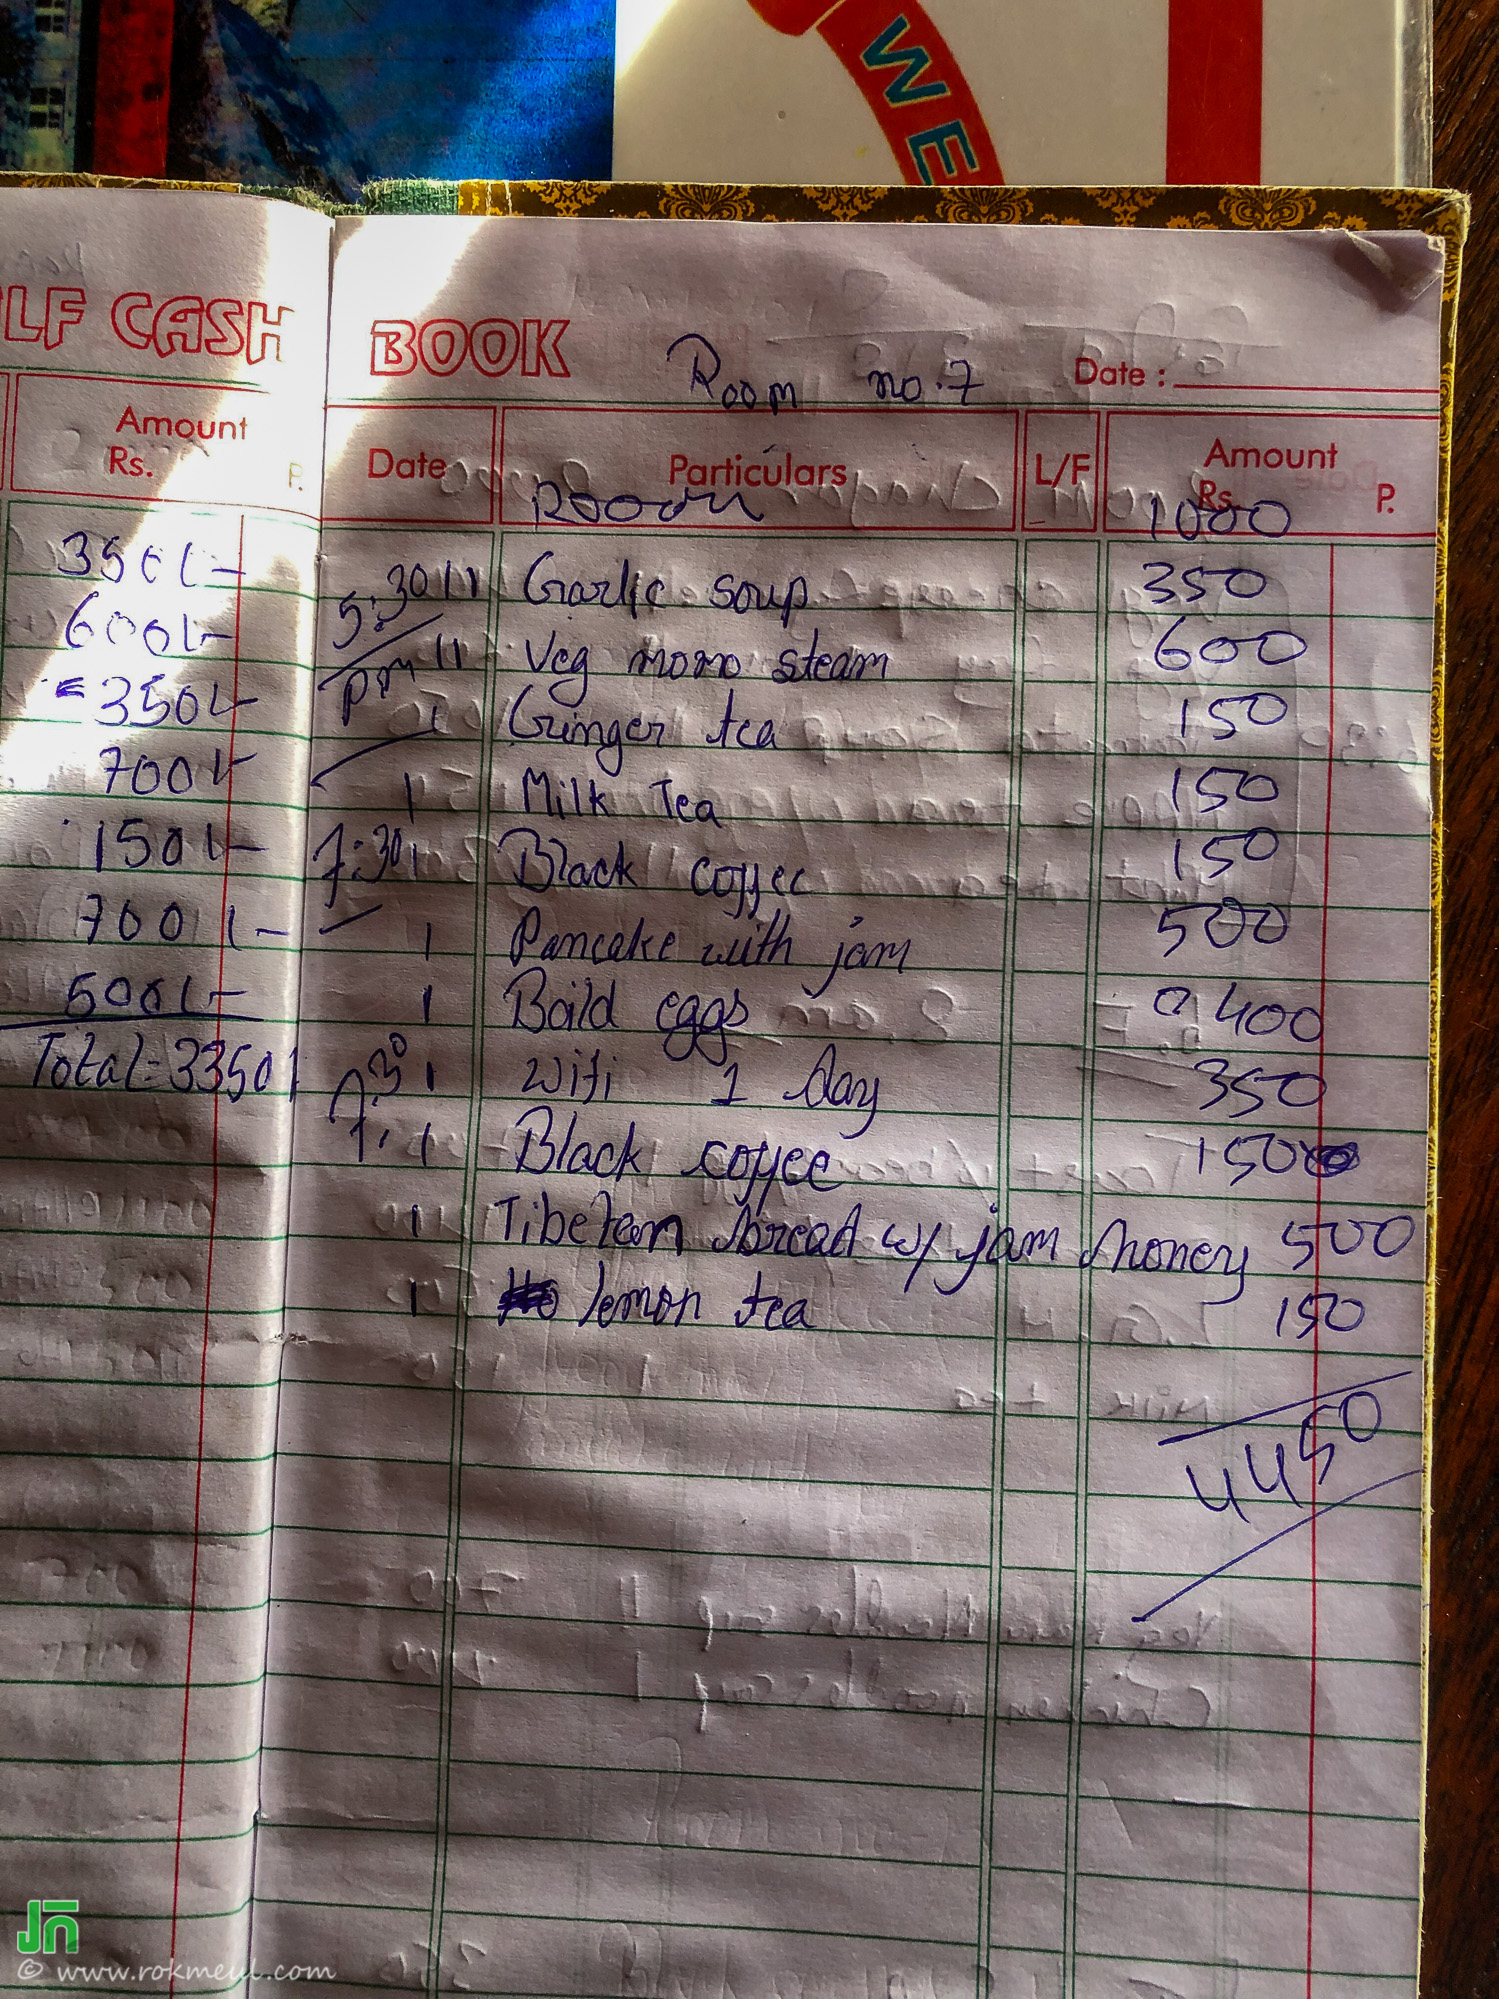 WE
LF CASH BOOK
Room no.7
Date :
Amount
Rs. P.
Date Particulars L/F Amount
Rs. P.
Room 1000
350/-
600/-
350/-
700/-
150/-
700/-
500/-
Total=3350/
5:30 11 Garlic soup 350
pm 11 Veg momo steam 600
1 Ginger tea 150
1 Milk Tea 150
7:30 1 Black coffee 150
1 Pancake with jam 500
1 Boild eggs 400
1 Wifi 1 day 350
7:30 1 Black coffee 150
1 Tibetan bread w/ jam honey 500
1 lemon tea 150
4450
Jn
© www.rokmeul.com